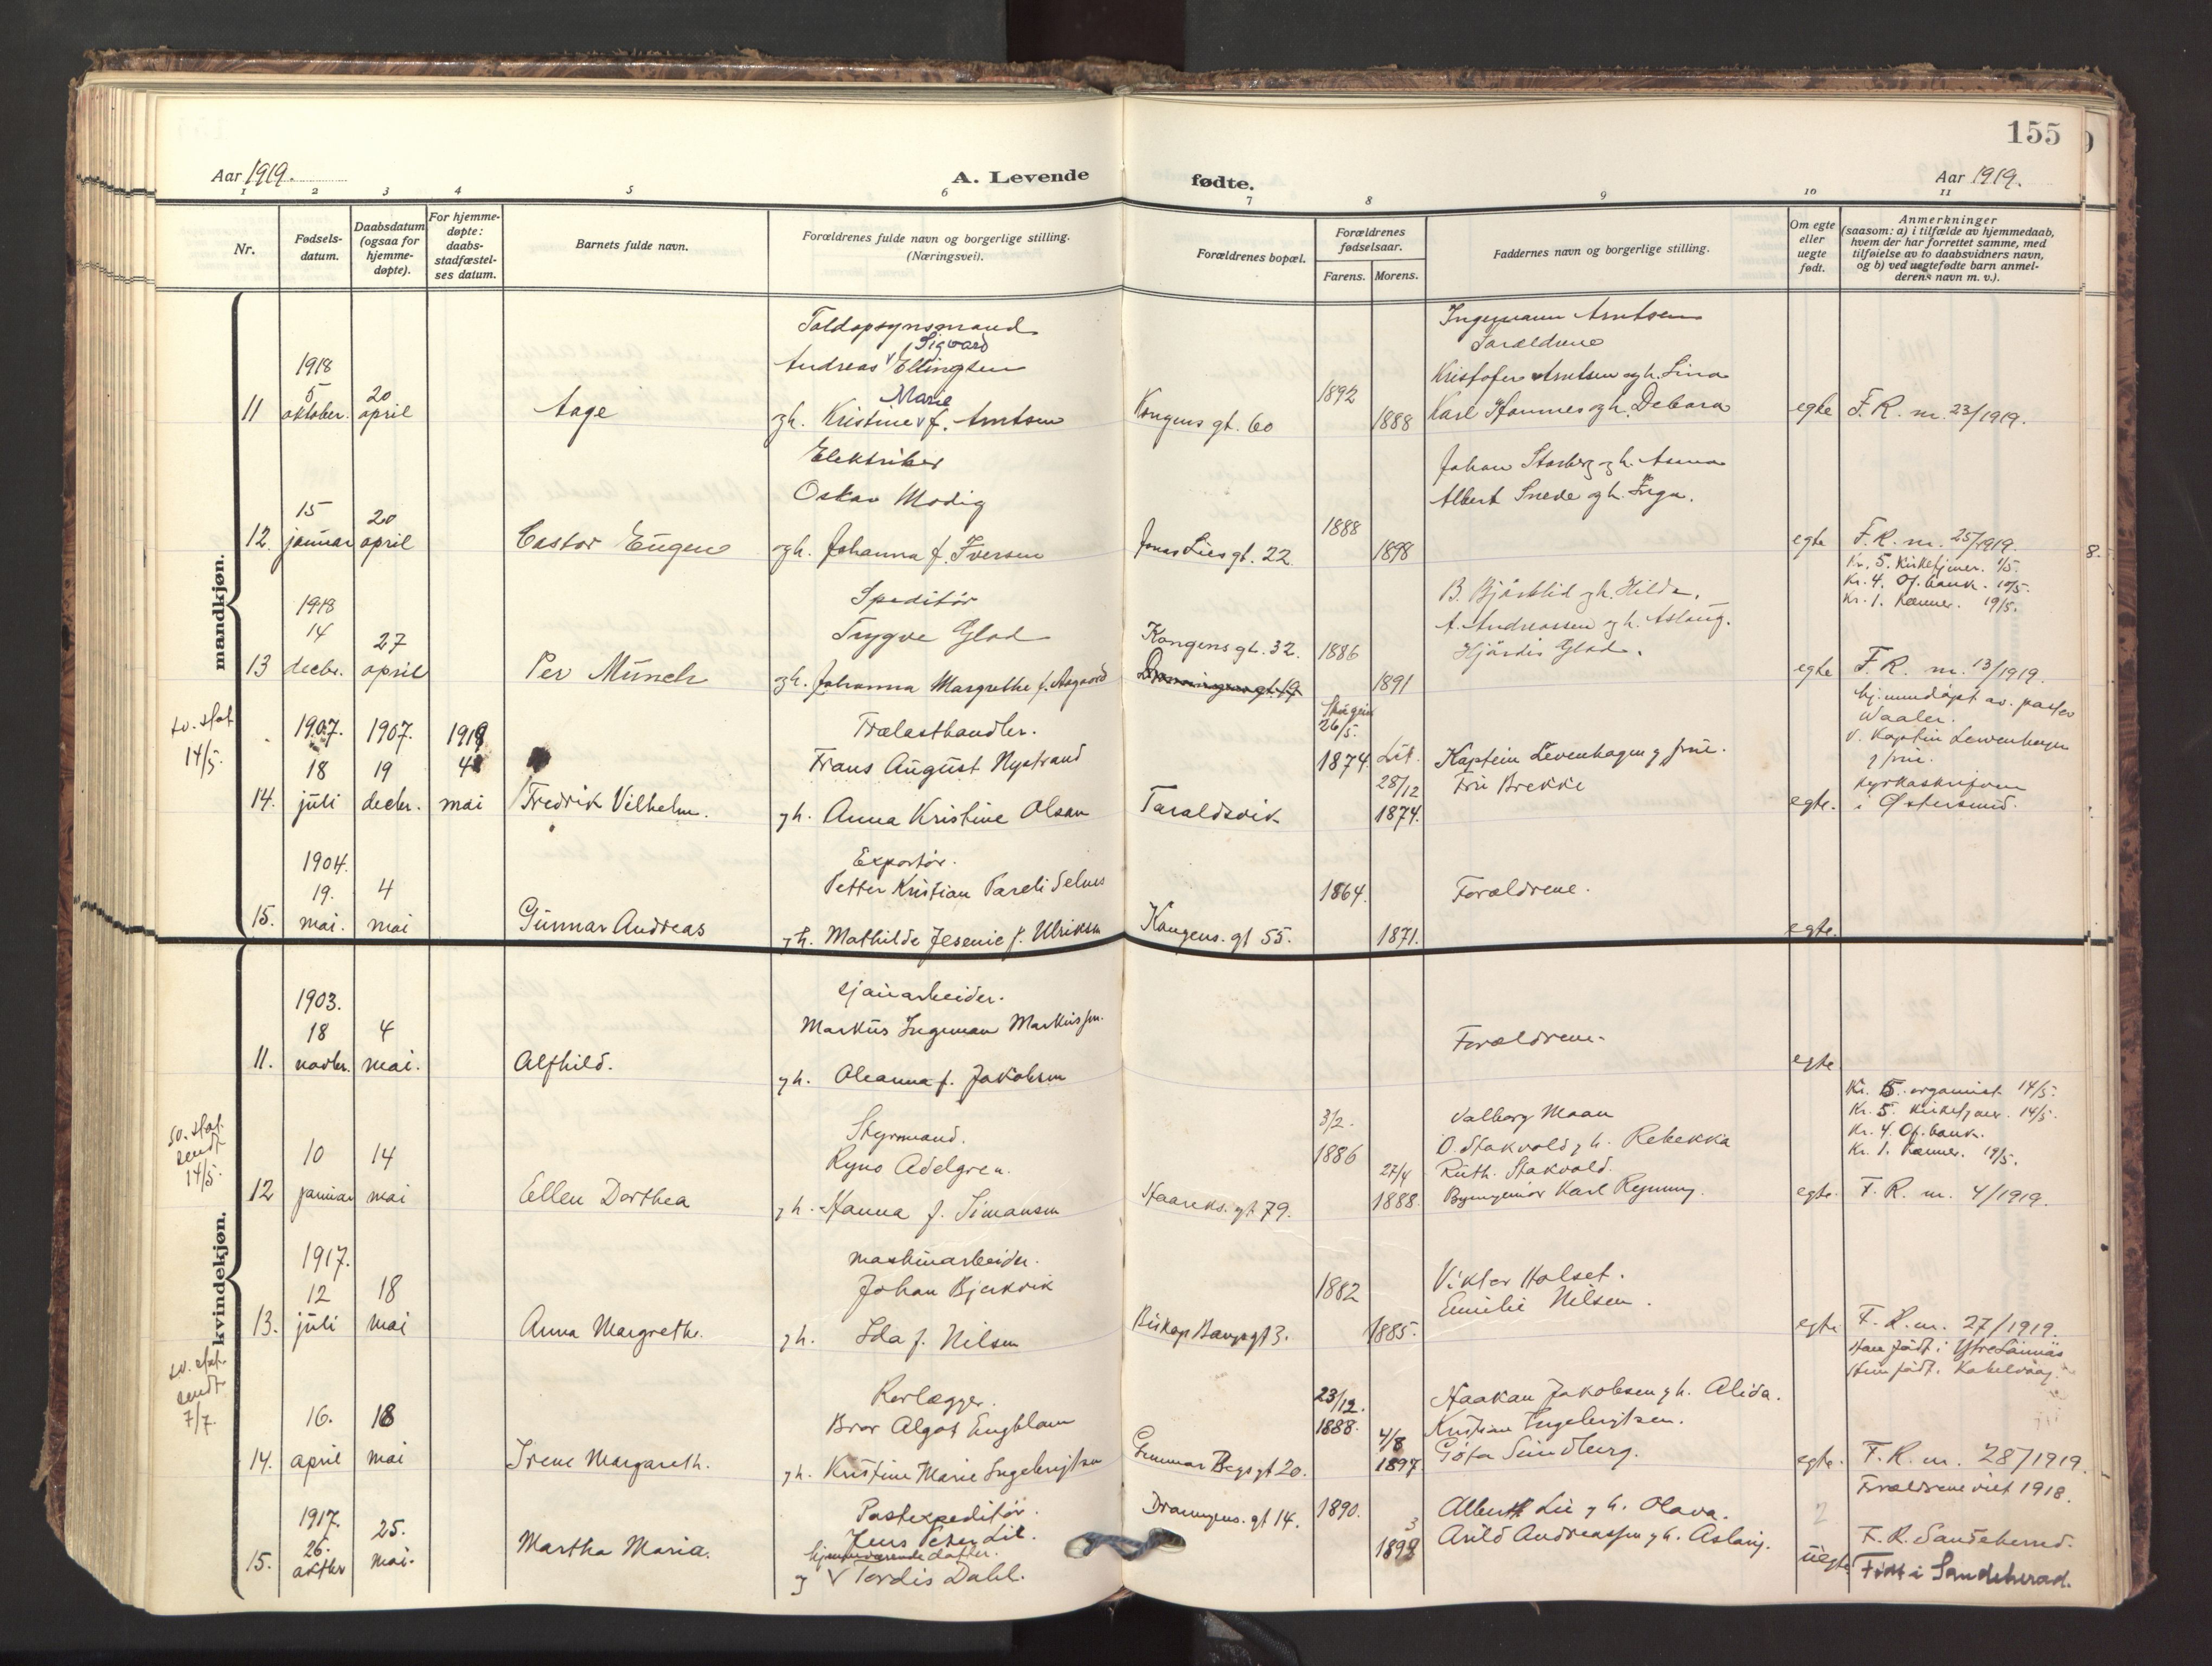 155
Aar 1919.
A. Levende
fødte.
Aar 1919.
1 2 3 4 5 6 7 8 9 10 11
Nr.
Fødsels-
datum.
Daabsdatum
(ogsaa for
hjemme-
døpte).
For hjemme-
døpte:
daabs-
stadfæstel-
ses datum.
Barnets fulde navn.
Forældrenes fulde navn og borgerlige stilling.
(Næringsvei).
Forældrenes bopæl.
Forældrenes
fødselsaar.
Farens. Morens.
Faddernes navn og borgerlige stilling.
Om egte
eller
uegte
født.
Anmerkninger
(saasom: a) i tilfælde av hjemmedaab,
hvem der har forrettet samme, med
tilføielse av to daabsvidners navn,
og b) ved uegtefødte barn anmel-
derens navn m. v.).
mandkjøn.
11
1918
5
oktober.
20
april
Aage
Toldopsynsmand
Sigvard
Andreas v Ellingsen
Marie
og h. Kristine v f. Arntsen
Kongens gt. 60
1892
1888
Ingemann Arntsen
Foreldrene
Kristofer Arntsen og h. Lina
Karl Hannes og h. Debora
egte
F. R. nr. 23/1919.
12.
15
januar
20
april
Castor Eugen
Elektriker
Oskar Modig
og h. Johanna f. Iversen
Jonas Lies gt. 22.
1888
1898
Johan Storberg og h. Anna
Albert Snede og h. Inga.
egte
F. R. nr. 25/1919.
Kr. 5. Kirketjener. 1/5.
Kr. 4. Of. bank. 10/5.
Kr. 1. Kemner. 19/5.
13
1918
14
decbr.
27
april
Per Münch
Speditør
Trygve Glad
og h. Johanna Margrethe f. Aagaard
Kongens gt. 32.
1886
1891
B. Bjørklid og h. Hilda.
A. Andreassen og h. Aslaug.
Hjørdis Glad.
egte
F. R. nr. 13/1919.
sv. stat
14/5.
14.
1907.
18
juli
1907.
19
decbr.
1919
4
mai
Fredrik Vilhelm.
Trælasthandler.
Frans August Nystrand
og h. Anna Kristine Olsen
Taraldsvik
26/5.
1874.
28/12
1874.
Kaptein Levenhagen og frue.
Fru Brekke
egte.
hjemmedøpt av. pastor
Waaler.
v. Kaptein Lewenhagen
og frue.
kyrkaskriven
i Østersund.
15.
1904.
19.
mai.
4
mai
Gunnar Andreas
Exportør.
Petter Kristian Pareli Selnes
og h. Mathilde Jesenie f. Ulriksen
Kongens. gt 55.
1864.
1871.
Forældrene.
egte.
kvindekjøn.
11.
1903.
18
novbr.
4
mai.
Alfhild.
sjauarbeider.
Markus Ingeman Markussen.
og h. Oleanna f. Jakobsen
Forældrene.
egte
sv. stat.
sendt
14/5.
12
10
januar
14
mai
Ellen Dorthea
Styrmand.
Ryno Adelgren.
og h. Hanna f. Simonsen
Haareks. gt 79.
3/2.
1886
27/4
1888.
Valborg Moan
O. Stokvold og h. Rebekka
Ruth. Stokvold.
Byingeniør Karl Rynning.
egte.
Kr. 5. organist 14/5.
Kr. 5. kirketjener. 14/5.
Kr. 4. Of. bank.
Kr. 1. Kemner. 19/5.
F. R. nr. 4/1919.
13.
1917.
12
juli
18
mai
Anna Margrethe.
maskinarbeider.
Johan Bjerkvik
og h. Ida f. Nilsen
Biskop Bangs gt 3.
1882
1885.
Viktor Holset.
Emilie Nilsen.
egte
F. R. nr. 27/1919.
sv. stat.
sendt
7/7.
14.
16.
april
18
mai
Irene Margareth.
Rørlægger.
Bror Algot Engblom
og h. Kristine Marie Ingebrigtsen
Gunnar Bergs gt 20.
23/12.
1888.
4/8
1897.
Haakan Jakobsen og h. Alida.
Kristian Ingebrigtsen.
Gøta Sundberg.
egte.
Han født i
Hun født. i Kabelvaag.
F. R. nr. 28/1919.
Forældrene viet 1918.
15.
1917.
26.
oktbr
25.
mai.
Martha Maria.
Postexpeditør.
Jens Peter Lie.
hjemmeværende datter.
og v Tordis Dahl.
Drammens. gt 14.
1890.
Albert Lie og h. Olava.
Arild Andreassen og h. Aslaug.
uegte
F. R. Sandeherred.
Født i Sandeherad.